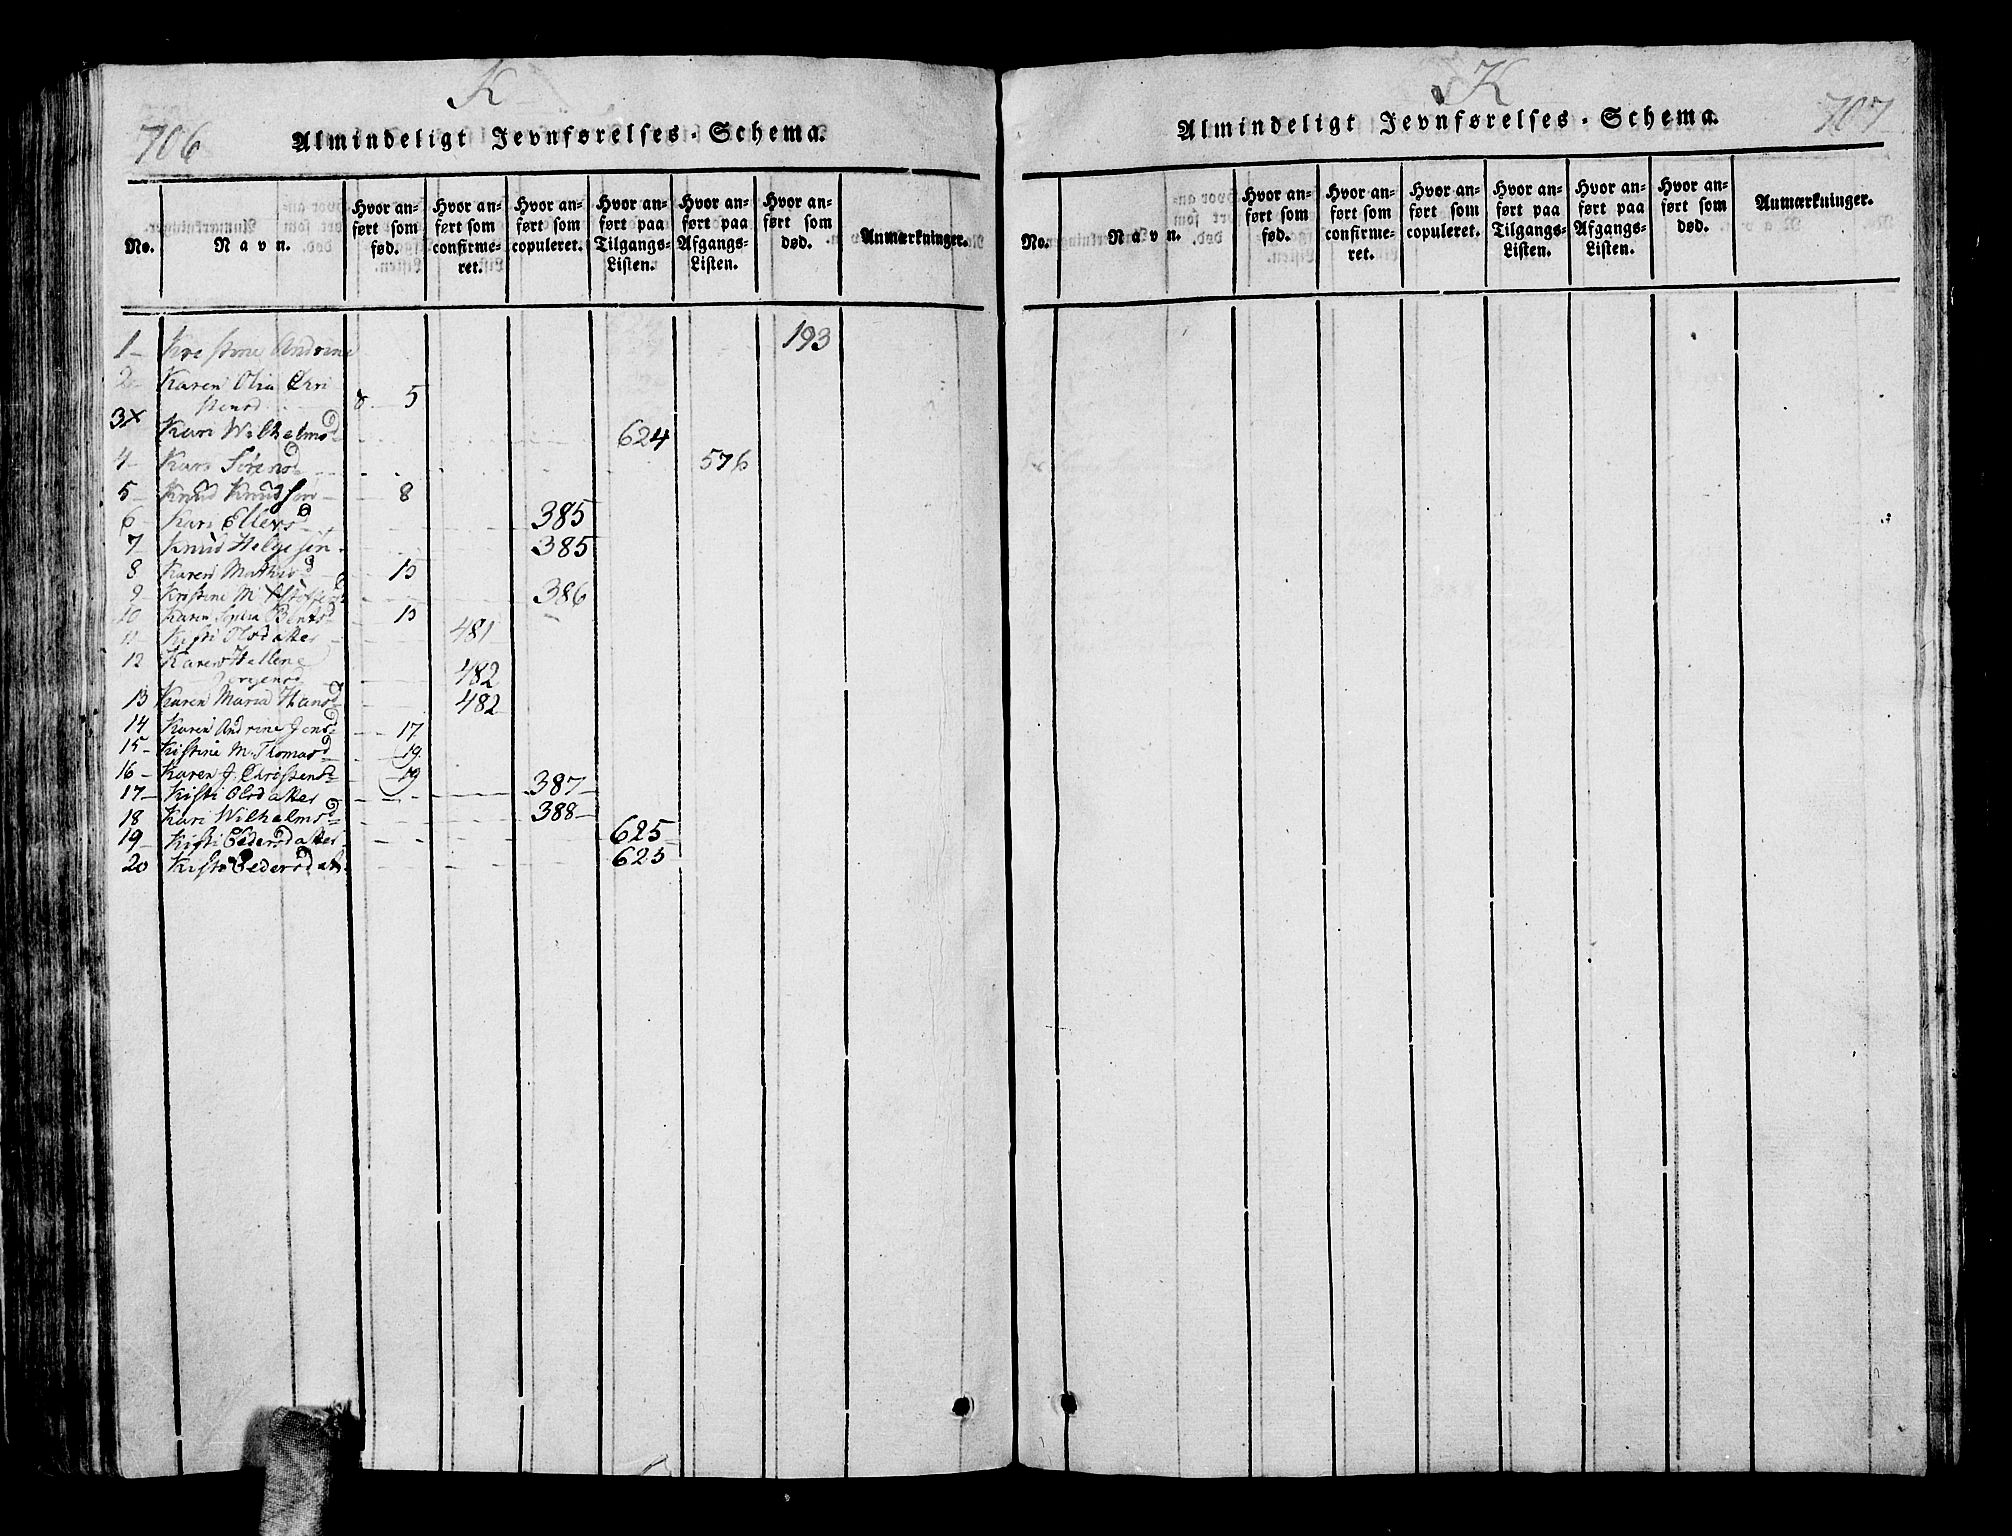 K
706
Almindeligt Jevnførelses-Schema.
No.
Navn.
Hvor an-
ført som
fød.
Hvor an-
ført som
confirme-
ret.
Hvor an-
ført som
copuleret.
Hvor an-
ført paa
Tilgangs-
Listen.
Hvor an-
ført paa
Afgangs-
Listen.
Hvor an-
ført som
død.
Anmærkninger.
1- Andrine 193
2- Karen Olia Chri
stensd 5
3x Kari Wilhelmsd 624
4- Kari Sørensd 576
5- Knud Knudsøn 8
6- Kari Ellevsd 385
7- Knud Helgesøn 385
8 Karen Mathisd 15
9 Kristine M 386
10 Karen Sophia Bentsd 15
11- Kisti Olsdatter 481
12 Karen Hellene
Jørgensd 482
13 Karen Maria Hansd 482
14 Karen Andrine Jensd 17
15- Kistine M. Thomasd 19
16- Karen J. Christensd 19
17- Kisti Olsdatter 387
18 Kari Wilhelmsd 388
19- Kisti Pedersdatter 625
20 Kisti Pedersdatt. 625
K
707
Almindeligt Jevnførelses-Schema.
No.
Navn.
Hvor an-
ført som
fød.
Hvor an-
ført som
confirme-
ret.
Hvor an-
ført som
copuleret.
Hvor an-
ført paa
Tilgangs-
Listen.
Hvor an-
ført paa
Afgangs-
Listen.
Hvor an-
ført som
død.
Anmærkninger.